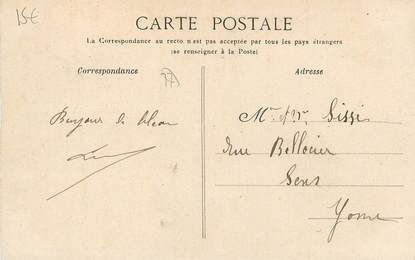 15€
CARTE POSTALE
La Correspondance au recto n'est pas acceptée par tous les pays étrangers
(se renseigner à la Poste)
Correspondance
Adresse
77
Bonjour de
Mr. & Me. Sissi
rue Bellocier
Sens
Yonne